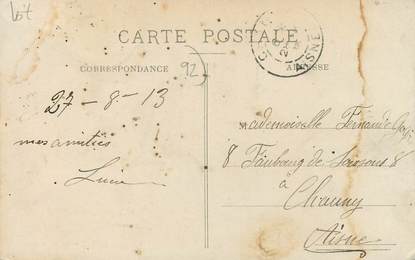 lot
CARTE POSTALE
CORRESPONDANCE
92
ADRESSE
AISNE
27 - 8 - 13
mes amitiés
Mademoiselle Fernande
8 Faubourg de Soissons 8
à
Chauny
Aisne